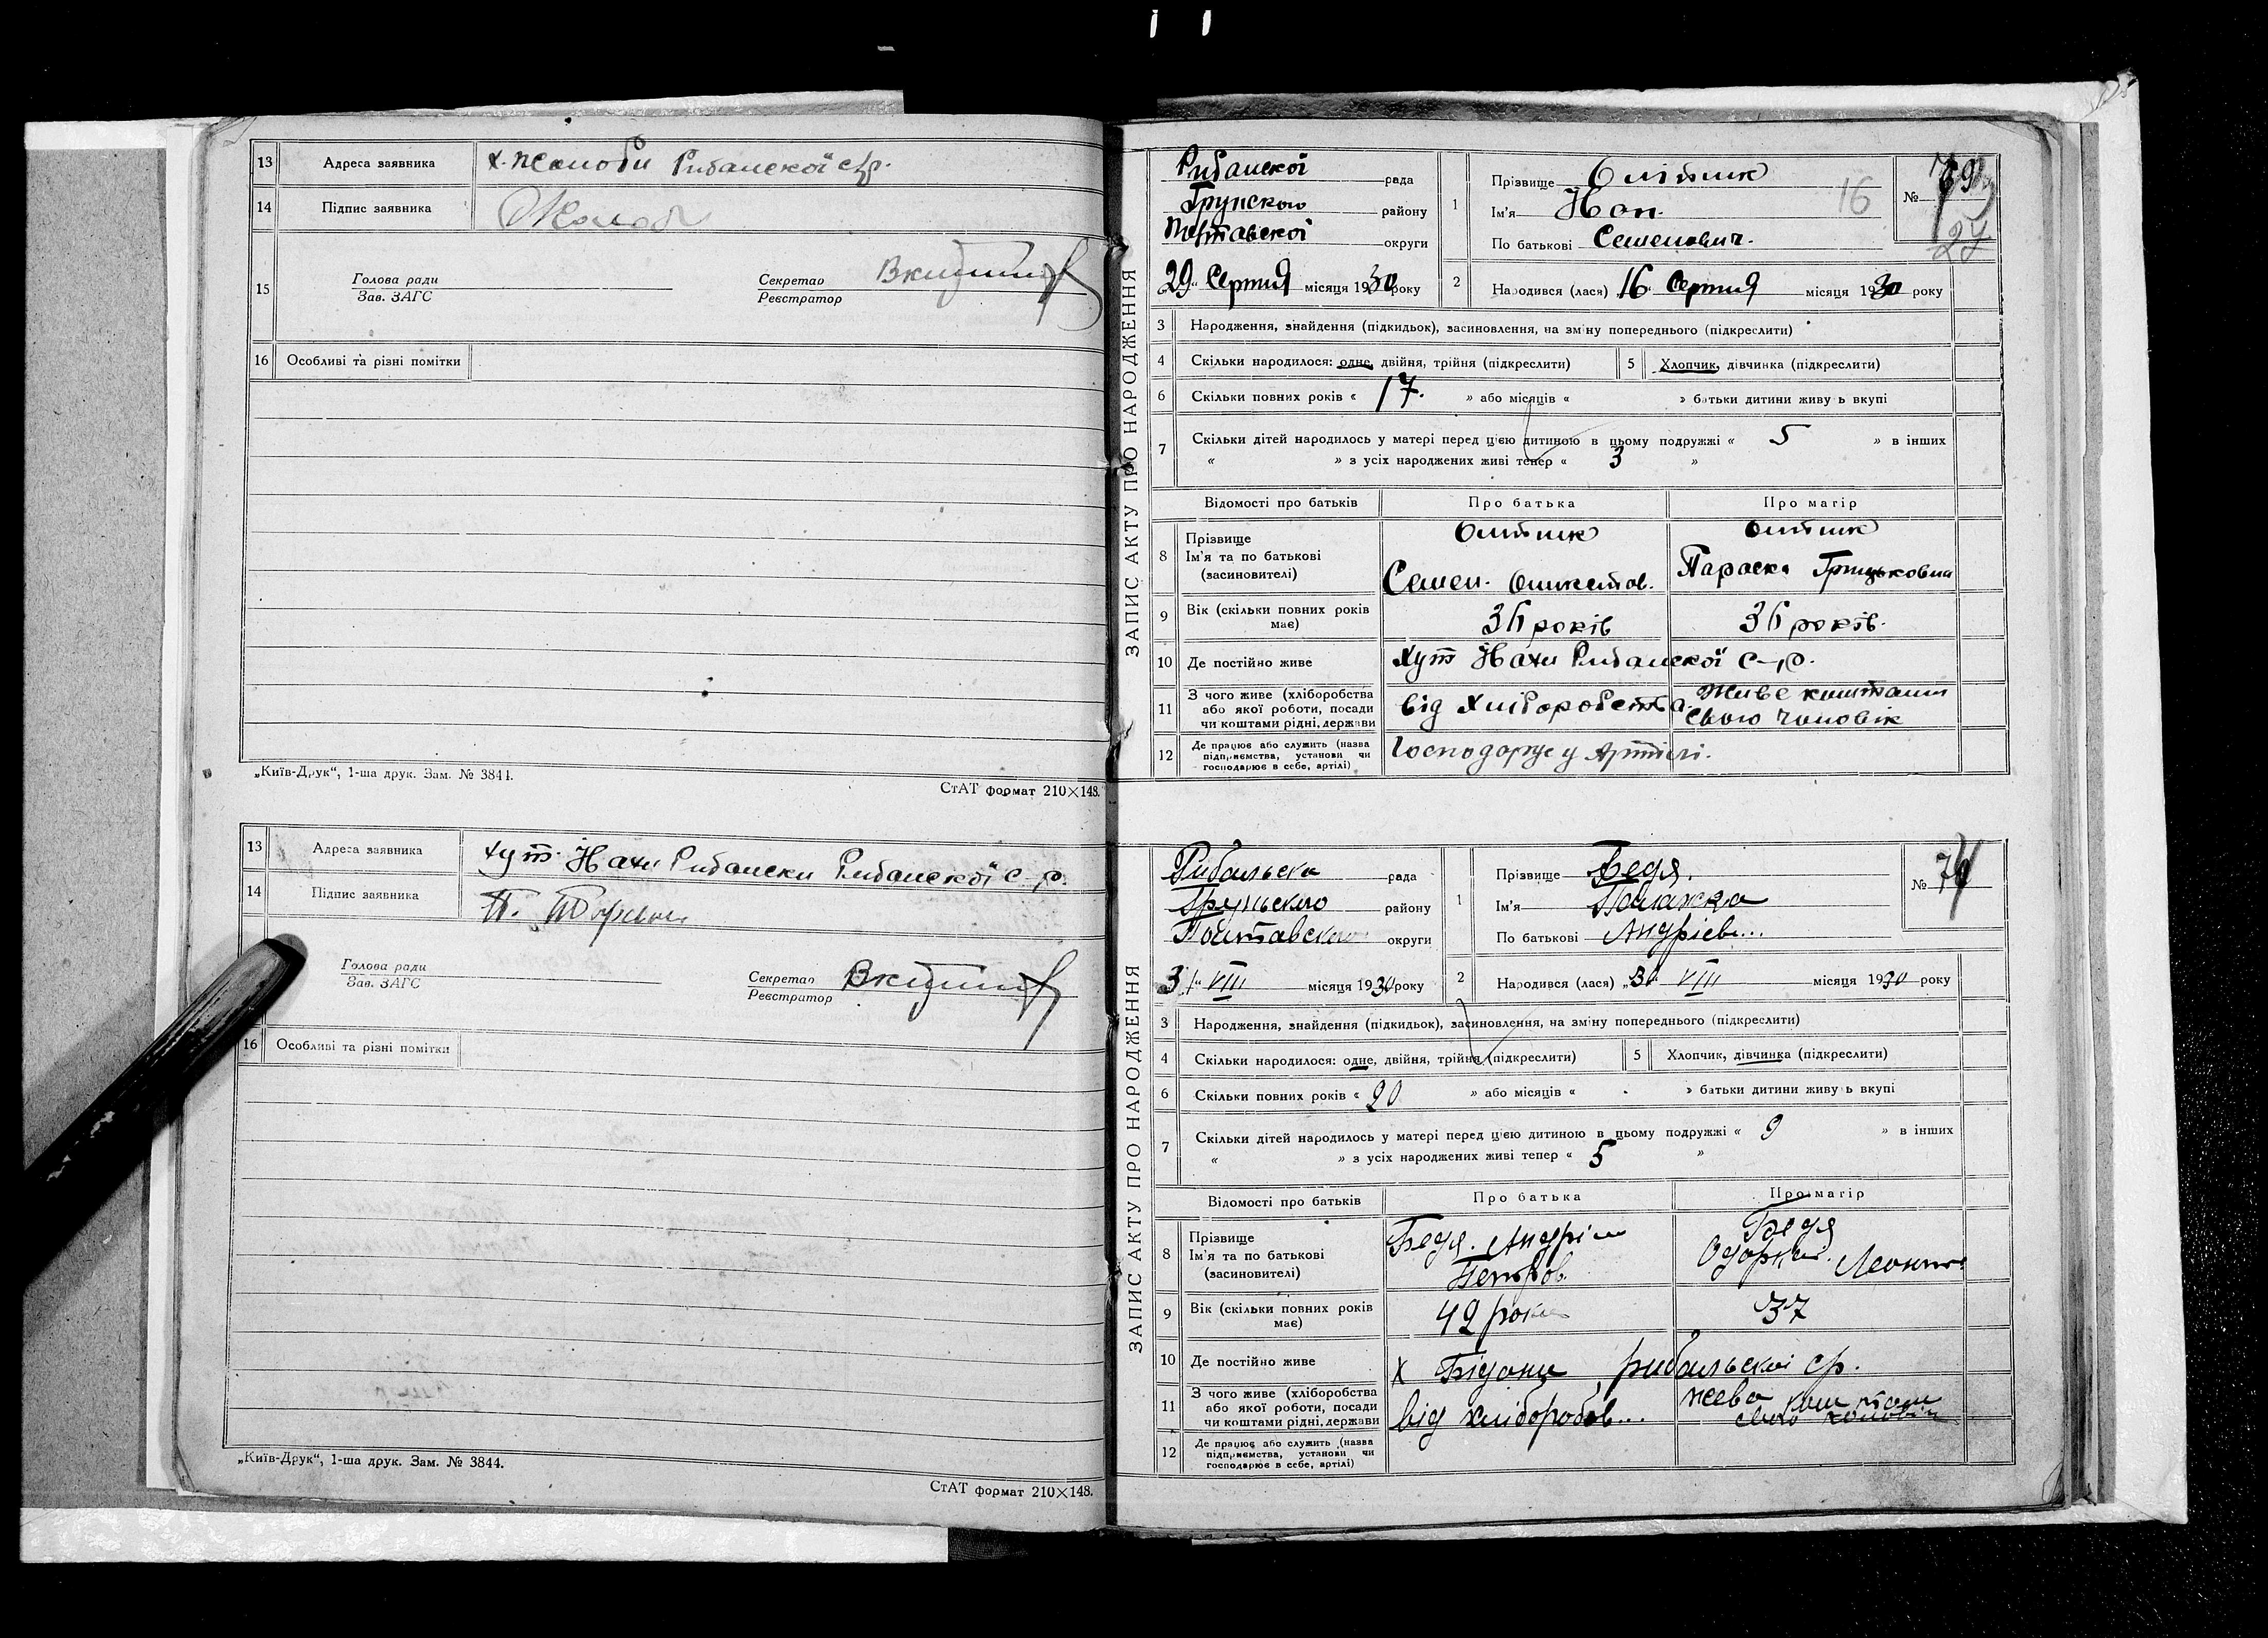 13 Адреса заявника х. Жолоби Рибалскої с/р.
14 Підпис заявника
15 Голова ради Зав. ЗАГС Секретар Реєстратор
16 Особливі та різні помітки
„Київ-Друк“, 1-ша друк. Зам. № 3844.
СтАТ формат 210×148.
13 Адреса заявника хут. Рибалскої с-р.
14 Підпис заявника
Голова ради Зав. ЗАГС Секретар Реєстратор
16 Особливі та різні помітки
„Київ-Друк“, 1-ша друк. Зам. № 3844.
СтАТ формат 210×148.
ЗАПИС АКТУ ПРО НАРОДЖЕННЯ
Рибалскої рада
Грунского району
Полтавскої округи
„29“ Серпня місяця 1930 року
1 Прізвище Олійник
Ім'я
По батькові Семенович.
16
№
27
2 Народився (лася) 16 Серпня місяця 1930 року
3 Народження, знайдення (підкидьок), засиновлення, на зміну попереднього (підкреслити)
4 Скільки народилося: одне, двійня, трійня (підкреслити) 5 Хлопчик, дівчинка (підкреслити)
6 Скільки повних років « 17. » або місяців « » батьки дитини живуть вкупі
7 Скільки дітей народилось у матері перед цією дитиною в цьому подружжі « 5 » в інших
« » з усіх народжених живі тепер « 3 »
Відомості про батьків Про батька Про матір
8 Прізвище Олійник Олійник
Ім'я та по батькові
(засиновителі) Семен. Параска Грицьковна
9 Вік (скільки повних років має) 36 років 36 років.
10 Де постійно живе хут Рибалскої с-р.
11 З чого живе (хліборобства або якої роботи, посади чи коштами рідні, держави від хліборобства. живе коштами свого чоловік
12 Де працює або служить (назва підприємства, установи чи господарює в себе, артілі) Господарує у Артілі.
ЗАПИС АКТУ ПРО НАРОДЖЕННЯ
Рибальска рада
Груньского району
Полтавскої округи
„31“ VIII місяця 1930 року
1 Прізвище Бедя.
Ім'я Палажка
По батькові Андрієв...
№
2 Народився (лася) „30“ VIII місяця 1930 року
3 Народження, знайдення (підкидьок), засиновлення, на зміну попереднього (підкреслити)
4 Скільки народилося: одне, двійня, трійня (підкреслити) 5 Хлопчик, дівчинка (підкреслити)
6 Скільки повних років « 20 » або місяців « » батьки дитини живуть вкупі
7 Скільки дітей народилось у матері перед цією дитиною в цьому подружжі « 9 » в інших
« » з усіх народжених живі тепер « 5 »
Відомості про батьків Про батька Про матір
8 Прізвище Бедя. Андрій Бедя
Ім'я та по батькові
(засиновителі) Петров.
9 Вік (скільки повних років має) 42 роки 37
10 Де постійно живе х рибальскої ср.
11 З чого живе (хліборобства або якої роботи, посади чи коштами рідні, держави від хлібороб... свого
12 Де працює або служить (назва підприємства, установи чи господарює в себе, артілі)